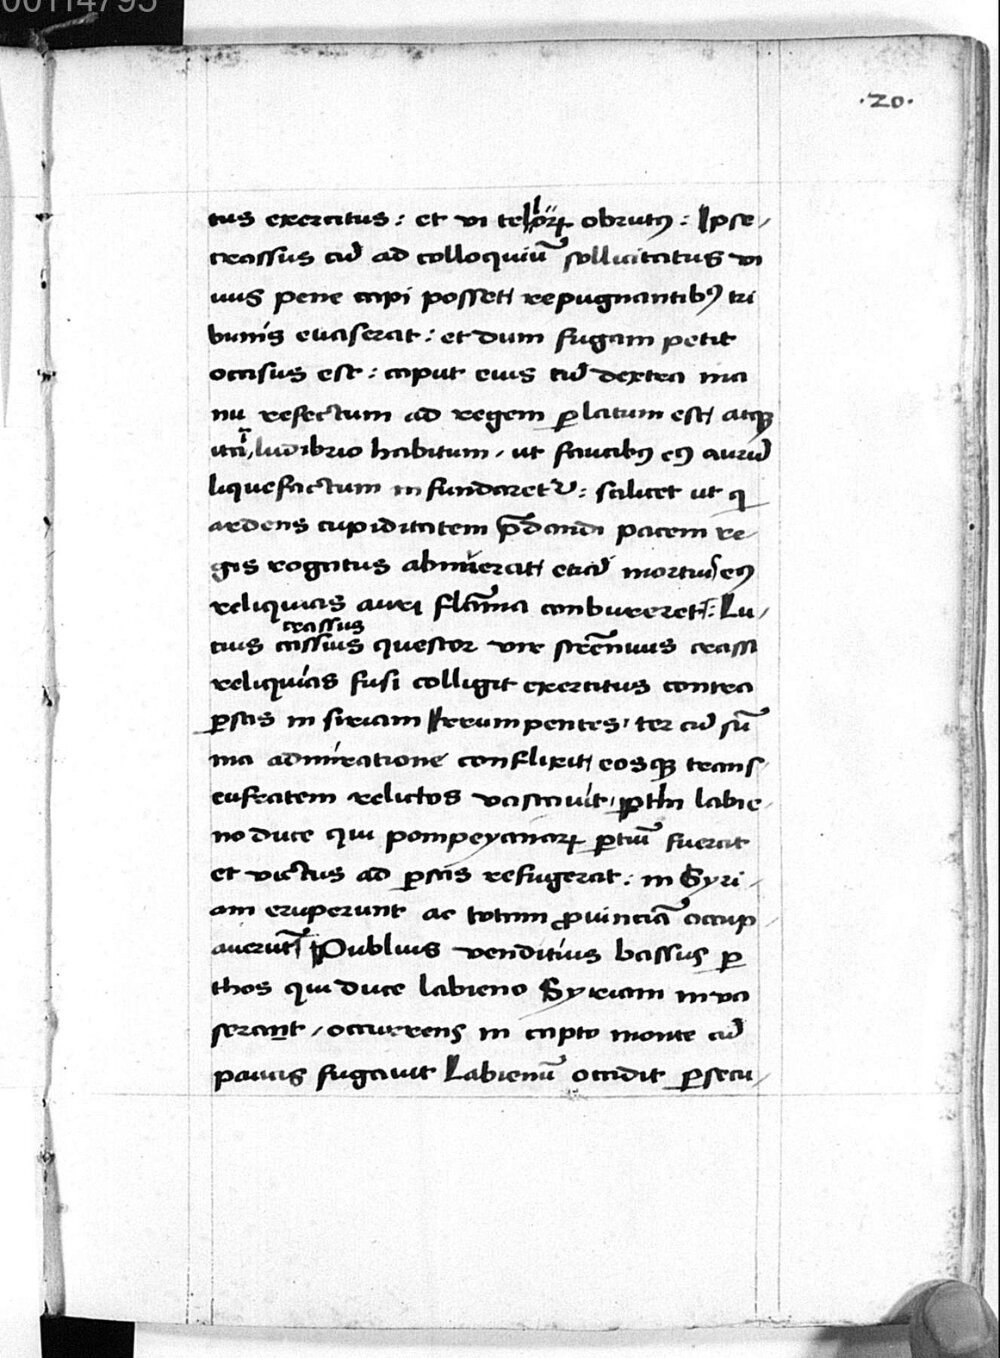 00114795
·20·
tus exercitus: et vi telorꝝ obrutꝰ: Ipse
crassus cū ad colloquiū sollicitatus vi
uus pene capi posset/ repugnantibꝰ tri
bunis euaserat: et dum fugam petit
occisus est: caput eius cū dextra ma
nu resectum ad regem ꝑlatum est/ atqꝫ
ita ludibrio habitum, ut faucibꝰ eꝰ aurū
liquefactum infundaretᷣ: scilicet ut q
ardens cupiditatem p̄dandi pacem re
gis rogatus abnuerat/ etiā mortui eꝰ
reliquias auri flāma conbureret: Lu
crassus
cius cassius questor vir strēnuus crassi
reliquias fusi colligit exercitus contra
ꝑsas in siriam Irrumpentes, ter cū sū
ma admiratione conflixit/ eosqꝫ trans
eufratem relictos vastauit, ꝑthi labie
no duce qui pompeyanarꝝ ꝑtiū fuerat
et victus ad ꝑsas refugerat: in Syri
am eruperunt ac totam ꝓuinciā occup
auerūt Publius venditius bassus ꝑ
thos qui duce labieno Syriam inua
serant, occurrens in capto monte cū
paucis fugauit Labienū occidit ꝑsecu